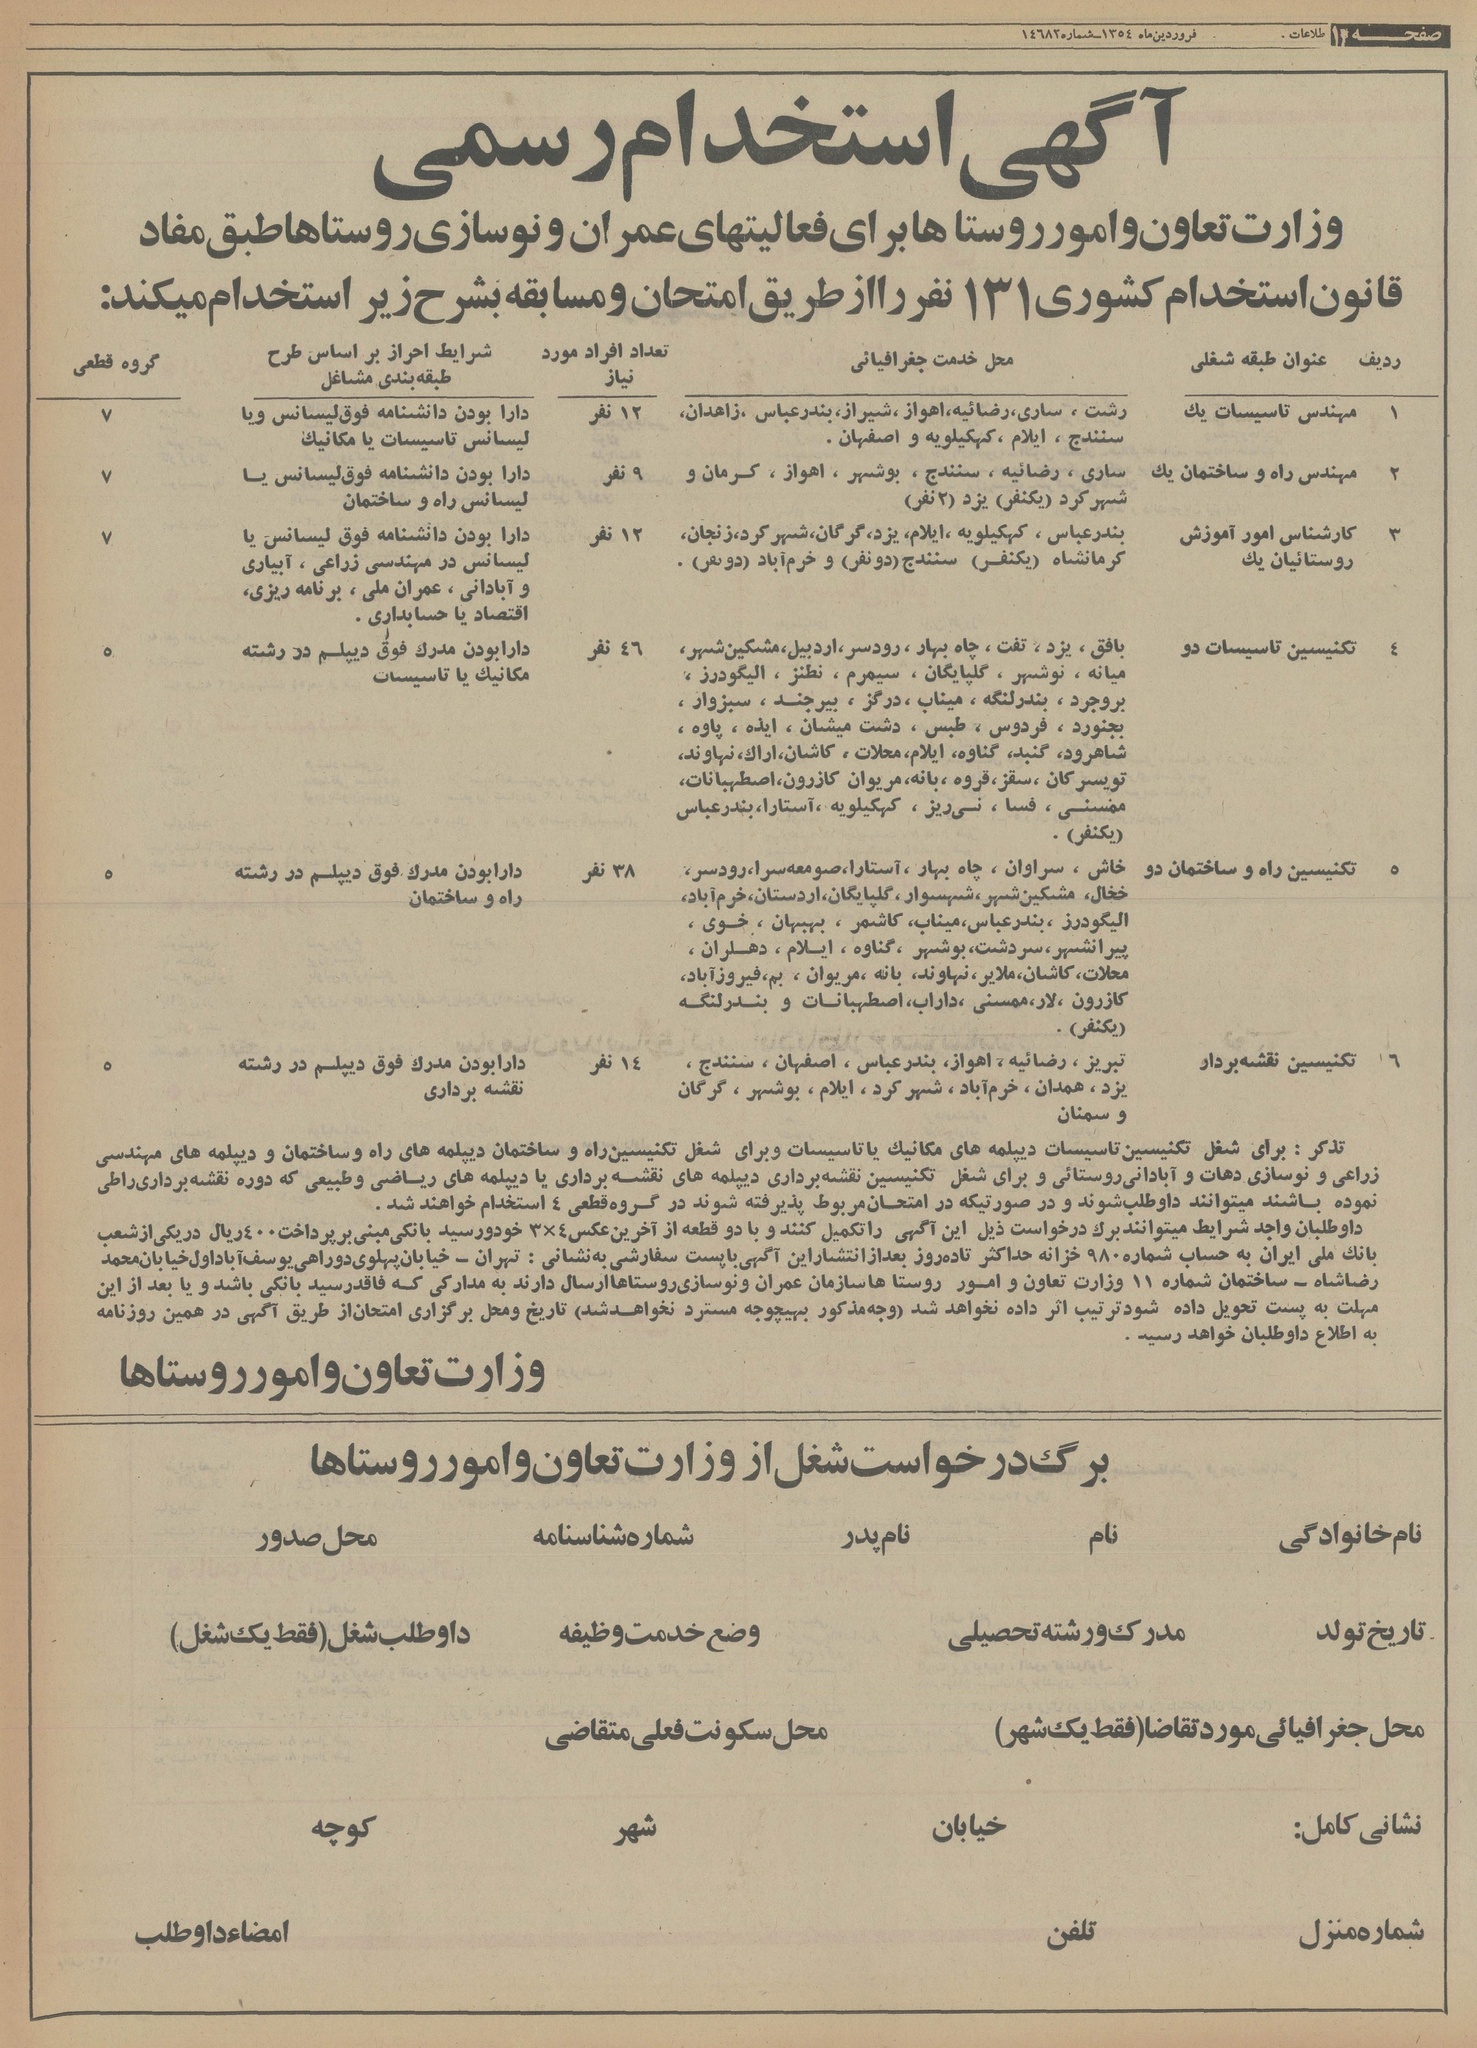 صفحه ۱۴
طلاعات . . فروردین‌ماه ۱۳۵۴-شماره ۱۴۶۸۲
آگهی استخدام رسمی
وزارت تعاون و امور روستاها برای فعالیتهای عمران و نوسازی روستاها طبق مفاد
قانون استخدام کشوری ۱۳۱ نفر را از طریق امتحان و مسابقه بشرح زیر استخدام میکند:
ردیف عنوان طبقه شغلی محل خدمت جغرافیائی تعداد افراد مورد نیاز شرایط احراز بر اساس طرح طبقه‌بندی مشاغل گروه قطعی
۱ مهندس تاسیسات یك رشت ، ساری،رضائیه،اهواز ،شیراز،بندرعباس ،زاهدان، ۱۲ نفر دارا بودن دانشنامه فوق‌لیسانس ویا ۷
سنندج ، ایلام ،کهکیلویه و اصفهان . لیسانس تاسیسات یا مکانیك
۲ مهندس راه و ساختمان یك ساری ، رضائیه ، سنندج ، بوشهر ، اهواز ، کرمان و ۹ نفر دارا بودن دانشنامه فوق‌لیسانس یا ۷
شهرکرد (یکنفر) یزد (۲نفر) لیسانس راه و ساختمان
۳ کارشناس امور آموزش بندرعباس ، کهکیلویه ،ایلام، یزد،گرگان،شهرکرد،زنجان، ۱۲ نفر دارا بودن دانشنامه فوق لیسانس یا ۷
روستائیان یك کرمانشاه (یکنفر) سنندج(دونفر) و خرم‌آباد (دونفر) . لیسانس در مهندسی زراعی ، آبیاری
و آبادانی ، عمران ملی ، برنامه ریزی،
اقتصاد یا حسابداری .
۴ تکنیسین تاسیسات دو بافق ، یزد ، تفت ، چاه بهار ، رودسر،اردبیل،مشکین‌شهر، ۴۶ نفر دارابودن مدرك فوق دیپلم در رشته ۵
میانه ، نوشهر ، گلپایگان ، سیمرم ، نطنز ، الیگودرز ، مکانیك یا تاسیسات
بروجرد ، بندرلنگه ، میناب ،درگز ، بیرجند ، سبزوار ،
بجنورد ، فردوس ، طبس ، دشت میشان ، ایذه ، پاوه ،
شاهرود، گنبد، گناوه، ایلام،محلات ، کاشان،اراك،نهاوند،
تویسرکان ،سقز،قروه ،بانه،مریوان کازرون،اصطهبانات،
ممسنی ، فسا ، نی‌ریز ، کهکیلویه ،آستارا،بندرعباس
(یکنفر) .
۵ تکنیسین راه و ساختمان دو خاش ، سراوان ، چاه بهار ،آستارا،صومعه‌سرا،رودسر، ۳۸ نفر دارابودن مدرك فوق دیپلم در رشته ۵
خخال، مشکین‌شهر،شهسوار،گلپایگان،اردستان،خرم‌آباد، راه و ساختمان
الیگودرز ،بندرعباس،میناب،کاشمر ، بهبهان ، خوی ،
پیرانشهر،سردشت،بوشهر ،گناوه ، ایلام ، دهلران ،
محلات،کاشان،ملایر،نهاوند، بانه ،مریوان ، بم،فیروزآباد،
کازرون ،لار،ممسنی ،داراب،اصطهبانات و بندرلنگه
(یکنفر) .
۶ تکنیسین نقشه‌بردار تبریز ، رضائیه ، اهواز، بندرعباس ، اصفهان ، سنندج ، ۱۴ نفر دارابودن مدرك فوق دیپلم در رشته ۵
یزد ، همدان ، خرم‌آباد، شهرکرد ، ایلام ، بوشهر ، گرگان نقشه برداری
و سمنان
تذکر : برای شغل تکنیسین‌تاسیسات دیپلمه های مکانیك یاتاسیسات وبرای شغل تکنیسین‌راه و ساختمان دیپلمه های راه وساختمان و دیپلمه های مهندسی
زراعی و نوسازی دهات و آبادانی‌روستائی و برای شغل تکنیسین نقشه‌برداری دیپلمه های نقشه برداری یا دیپلمه های ریاضی وطبیعی که دوره نقشه‌برداری‌راطی
نموده باشند میتوانند داوطلب‌شوند و در صورتیکه در امتحان‌مربوط پذیرفته شوند در گروه‌قطعی ۴ استخدام خواهند شد .
داوطلبان واجد شرایط میتوانندبرك درخواست ذیل این آگهی راتکمیل کنند و با دو قطعه از آخرین‌عکس۴×۳ خودورسید بانکی‌مبنی‌برپرداخت۴۰۰ریال دریکی‌ازشعب
بانك ملی ایران به حساب شماره۹۸۰ خزانه حداکثر تاده‌روز بعدازانتشاراین آگهی‌باپست سفارشی به‌نشانی : تهران - خیابان‌پهلوی‌دوراهی‌یوسف‌آباداول‌خیابان‌محمد
رضاشاه - ساختمان شماره ۱۱ وزارت تعاون و امور روستا هاسازمان عمران ونوسازی‌روستاهاارسال دارند به مدارکی که فاقدرسید بانکی باشد و یا بعد از این
مهلت به پست تحویل داده شودترتیب اثر داده نخواهد شد (وجه‌مذکور بهیچوجه مسترد نخواهدشد) تاریخ ومحل برگزاری امتحان‌از طریق آگهی در همین روزنامه
به اطلاع داوطلبان خواهد رسید .
وزارت تعاون و امور روستاها
برگ درخواست شغل از وزارت تعاون و امور روستاها
نام خانوادگی نام نام پدر شماره شناسنامه محل صدور
تاریخ تولد مدرک و رشته تحصیلی وضع خدمت وظیفه داوطلب شغل (فقط یک شغل)
محل جغرافیائی مورد تقاضا (فقط یک شهر) محل سکونت فعلی متقاضی
نشانی کامل: خیابان شهر کوچه
شماره منزل تلفن امضاء داوطلب